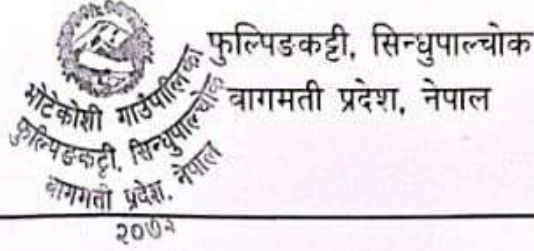 फुल्पिङकट्टी, सिन्धुपाल्चोक
वागमती प्रदेश, नेपाल
भोटेकोशी गाउँपालिका
फुल्पिङकट्टी, सिन्धुपाल्चोक
बागमती प्रदेश, नेपाल
२०७२